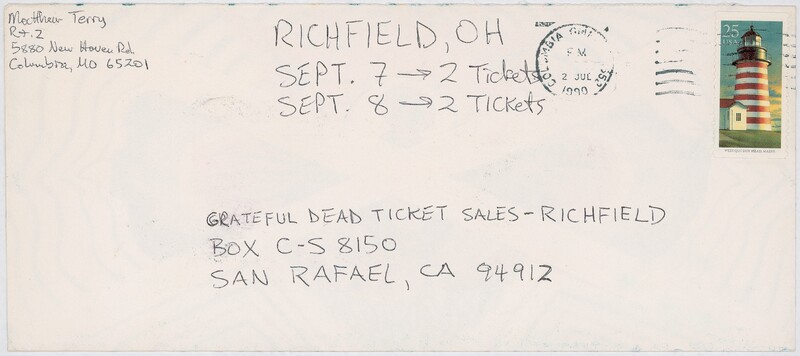 Matthew Terry
Rt. 2
5880 New Haven Rd
Columbia, MO 65201
RICHFIELD, OH
SEPT. 7 → 2 Tickets
SEPT. 8 → 2 TICKETS
COLUMBIA
PM
2 JUL
1990
25
USA
GRATEFUL DEAD TICKET SALES - RICHFIELD
BOX C-S 8150
SAN RAFAEL, CA 94912